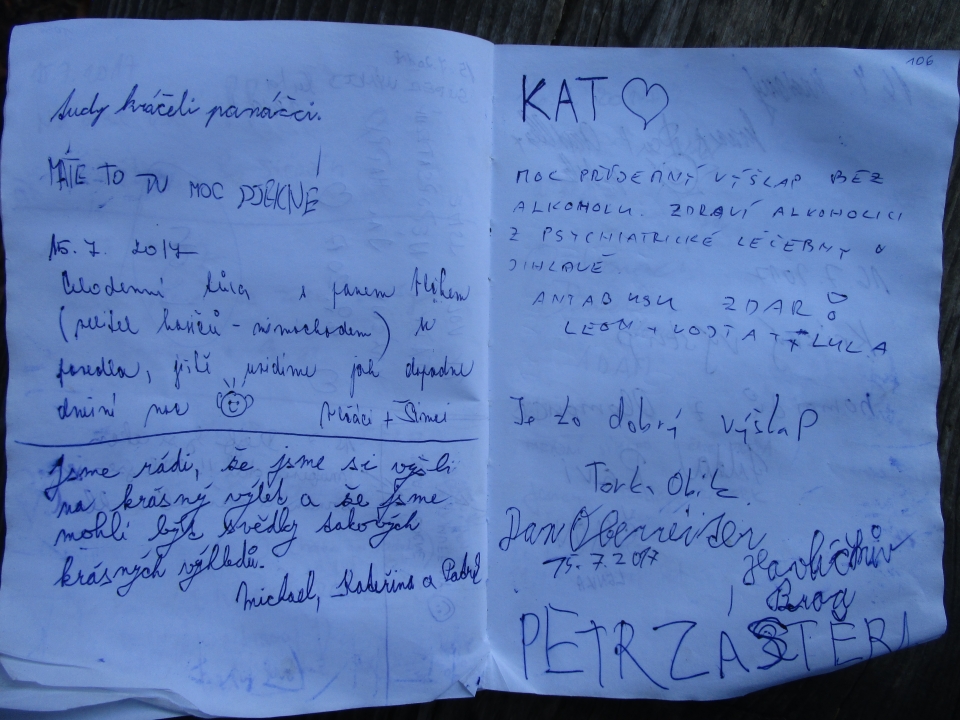 Tudy kráčeli panáčci.
MÁTE TO TU MOC PJEKNÉ!
15. 7. 2017
Celodenní túra s panem
(velitel hasičů - mimochodem) k
, ještě uvidíme jak dopadne
dnešní noc
Jsme rádi, že jsme si vyšli
na krásný výlet a že jsme
mohli být svědky takových
krásných výhledů.
Michael, Kateřina a
106
KAT ♡
MOC PŘÍJEMNÝ VÝŠLAP BEZ
ALKOHOLU. ZDRAVÍ ALKOHOLICI
Z PSYCHIATRICKÉ LÉČEBNY V
JIHLAVĚ.
ANTABUSU ZDAR!
LEON + VOJTA +
Je to dobrý výšlaP
Dan Oberreiter
15. 7. 2017
Havlíčkův
Brod
PETR